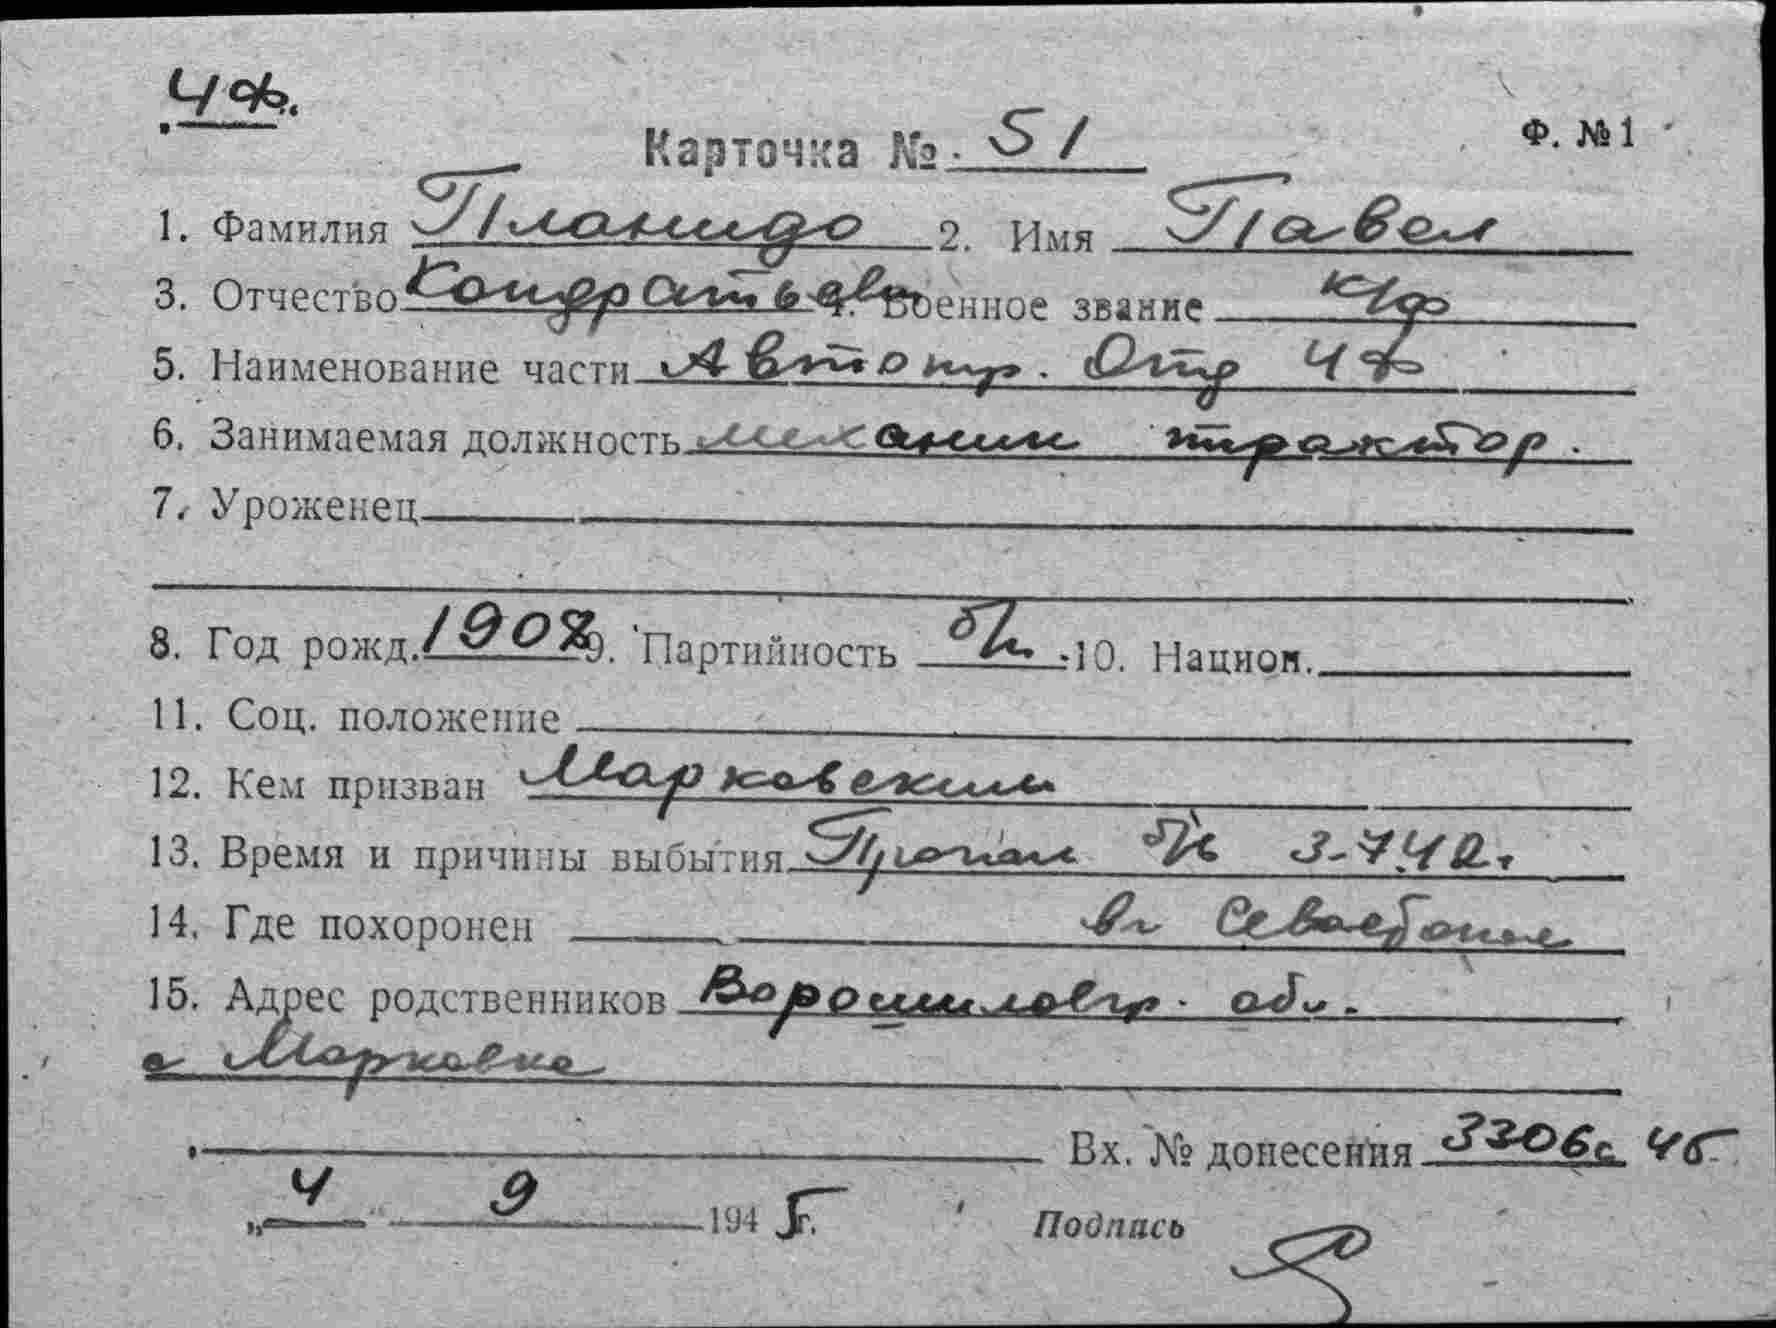 ЧФ.
Карточка № 51 Ф. №1
1. Фамилия Планидо 2. Имя Павел
3. Отчество Кондратьев 4. Военное звание к/ф
5. Наименование части Автотр. Отд ЧФ
6. Занимаемая должность механик трактор.
7. Уроженец
8. Год рожд. 1908 9. Партийность б/п 10. Национ.
11. Соц. положение
12. Кем призван Марковским
13. Время и причины выбытия Пропал б/в 3.7.42.
14. Где похоронен в г Севастополе
15. Адрес родственников Ворошиловгр. обл.
с Марковка
Вх. № донесения 3306с 45
„4“ 9 1945 г. Подпись